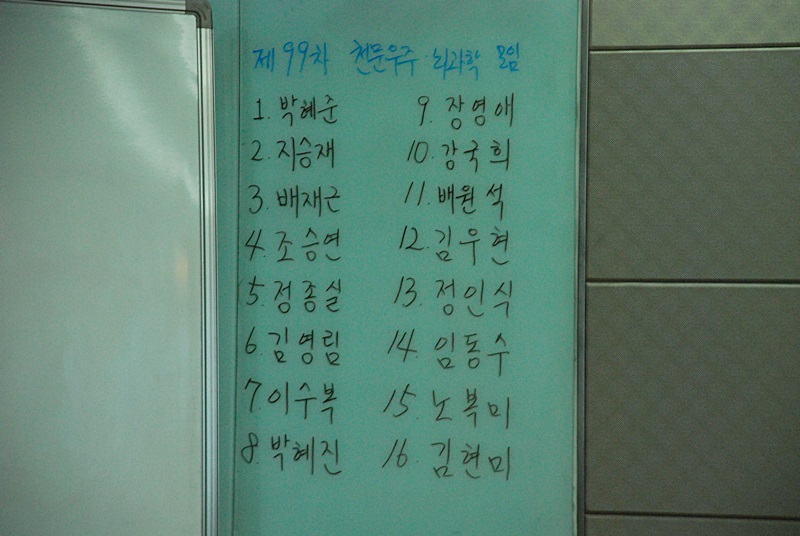 제 99차 천문우주 뇌과학 모임
1. 박혜준
2. 지승재
3. 배재근
4. 조승연
5. 정종실
6. 김영림
7 이수복
8. 박혜진
9. 장영애
10. 강국희
11. 배원석
12. 김우현
13. 정인식
14 임동수
15. 노복미
16. 김현미